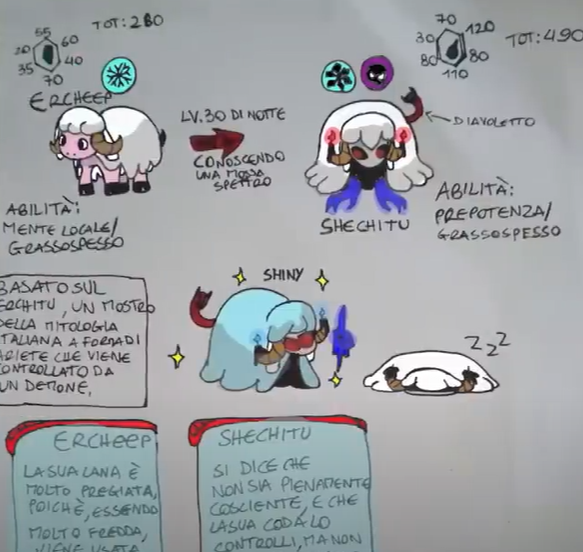 TOT: 280
55
60
40
70
35
20
ERCHEEP
70
120
80
110
80
30
TOT: 490
LV. 30 DI NOTTE
CONOSCENDO
UNA MOSSA
SPETTRO
DIAVOLETTO
SHECHITU
ABILITÀ:
MENTE LOCALE/
GRASSOSPESSO
ABILITÀ:
PREPOTENZA/
GRASSOSPESSO
BASATO SUL
ERCHITU, UN MOSTRO
DELLA MITOLOGIA
ITALIANA A FORMA DI
ARIETE CHE VIENE
CONTROLLATO DA
UN DEMONE,
SHINY
Z Z Z
ERCHEEP
LA SUA LANA È
MOLTO PREGIATA,
POICHÈ, ESSENDO
MOLTO FREDDA,
VIENE USATA
SHECHITU
SI DICE CHE
NON SIA PIENAMENTE
COSCIENTE, E CHE
LA SUA CODA LO
CONTROLLI, MA NON